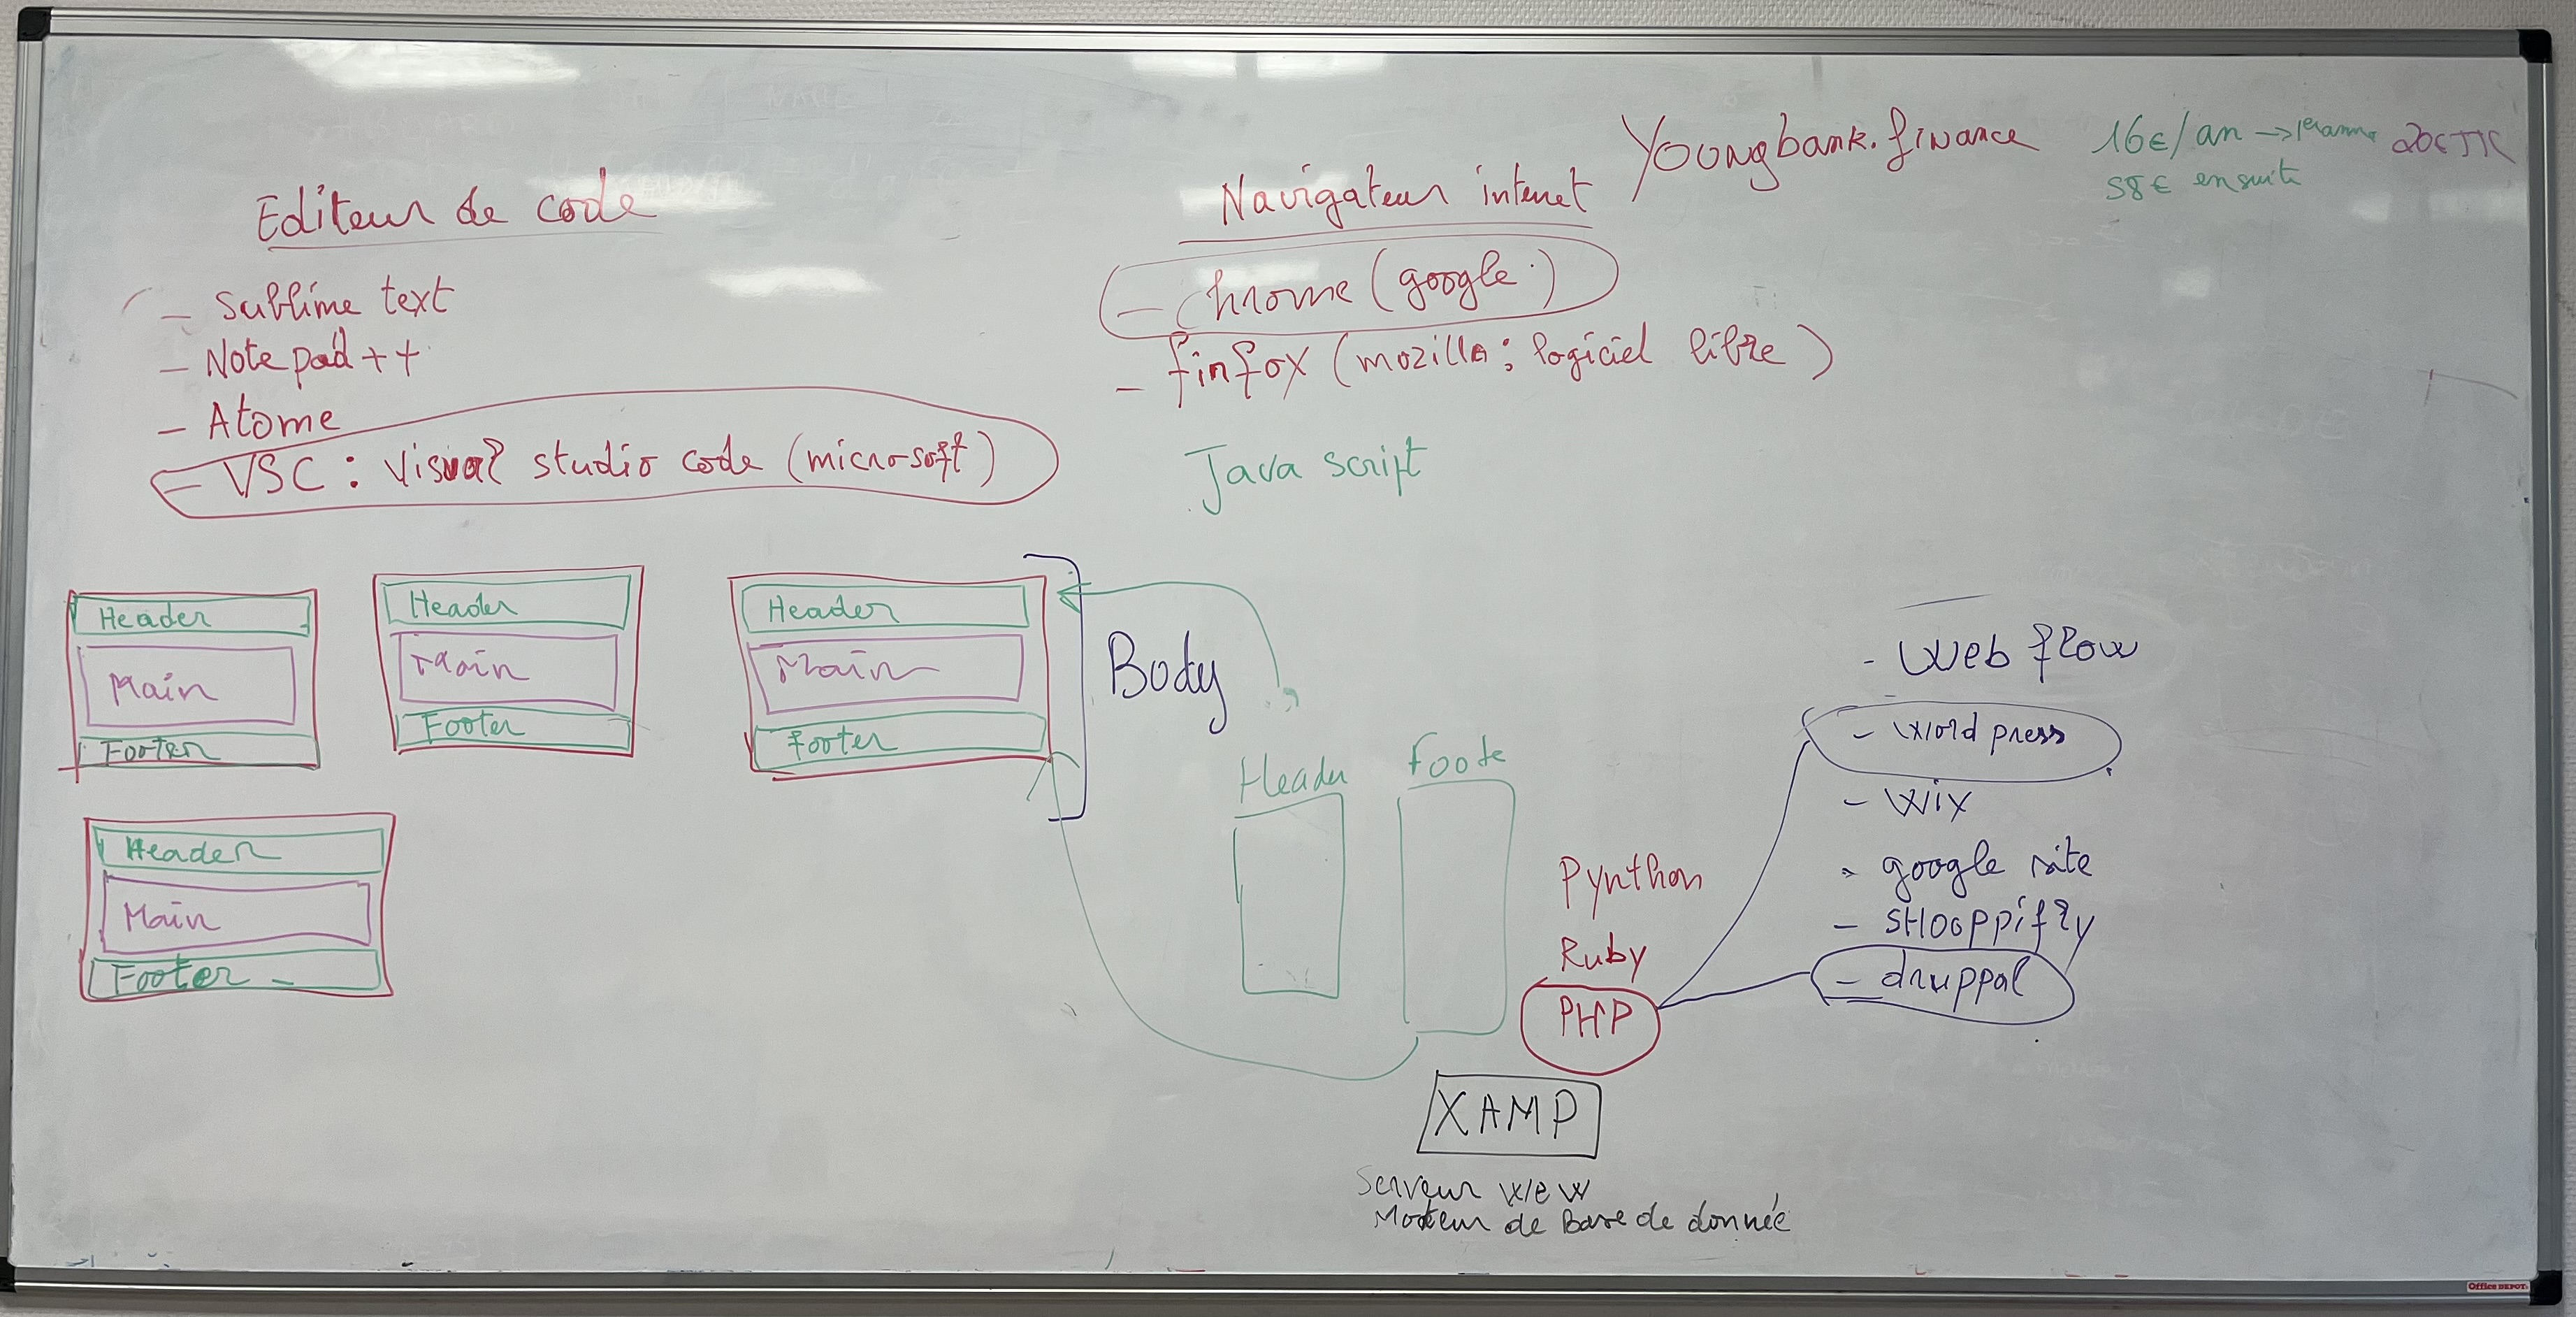 Editeur de code
- Sublime text
- Note pad ++
- Atome
- VSC : Visual studio code (microsoft)
Navigateur internet
- chrome (google)
- finfox (mozilla : logiciel libre)
Java script
Yoongbank.finance
16€/an →
58€ ensuite
Header
Main
Footer
Header
Main
Footer
Header
Main
Footer
Body
Header
Main
Footer
Header
Foote
Pynthon
Ruby
PHP
XAMP
Serveur wew
Moteur de Base de donnée
- Web flow
- Word press
- Wix
- google site
- SHooppifzy
- druppal
Office DEPOT